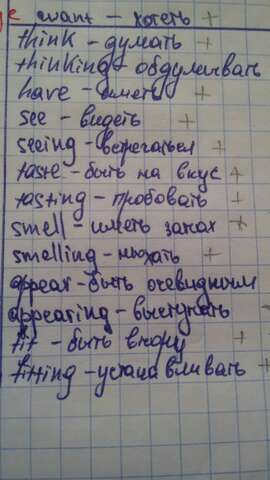 want – хотеть +
think – думать +
thinking – обдумывать
have – иметь +
see – видеть +
seeing – встречаться +
taste – быть на вкус +
tasting – пробовать +
smell – иметь запах +
smelling – нюхать +
appear – быть очевидным
appearing – выступать
fit – быть впору +
fitting – устанавливать +